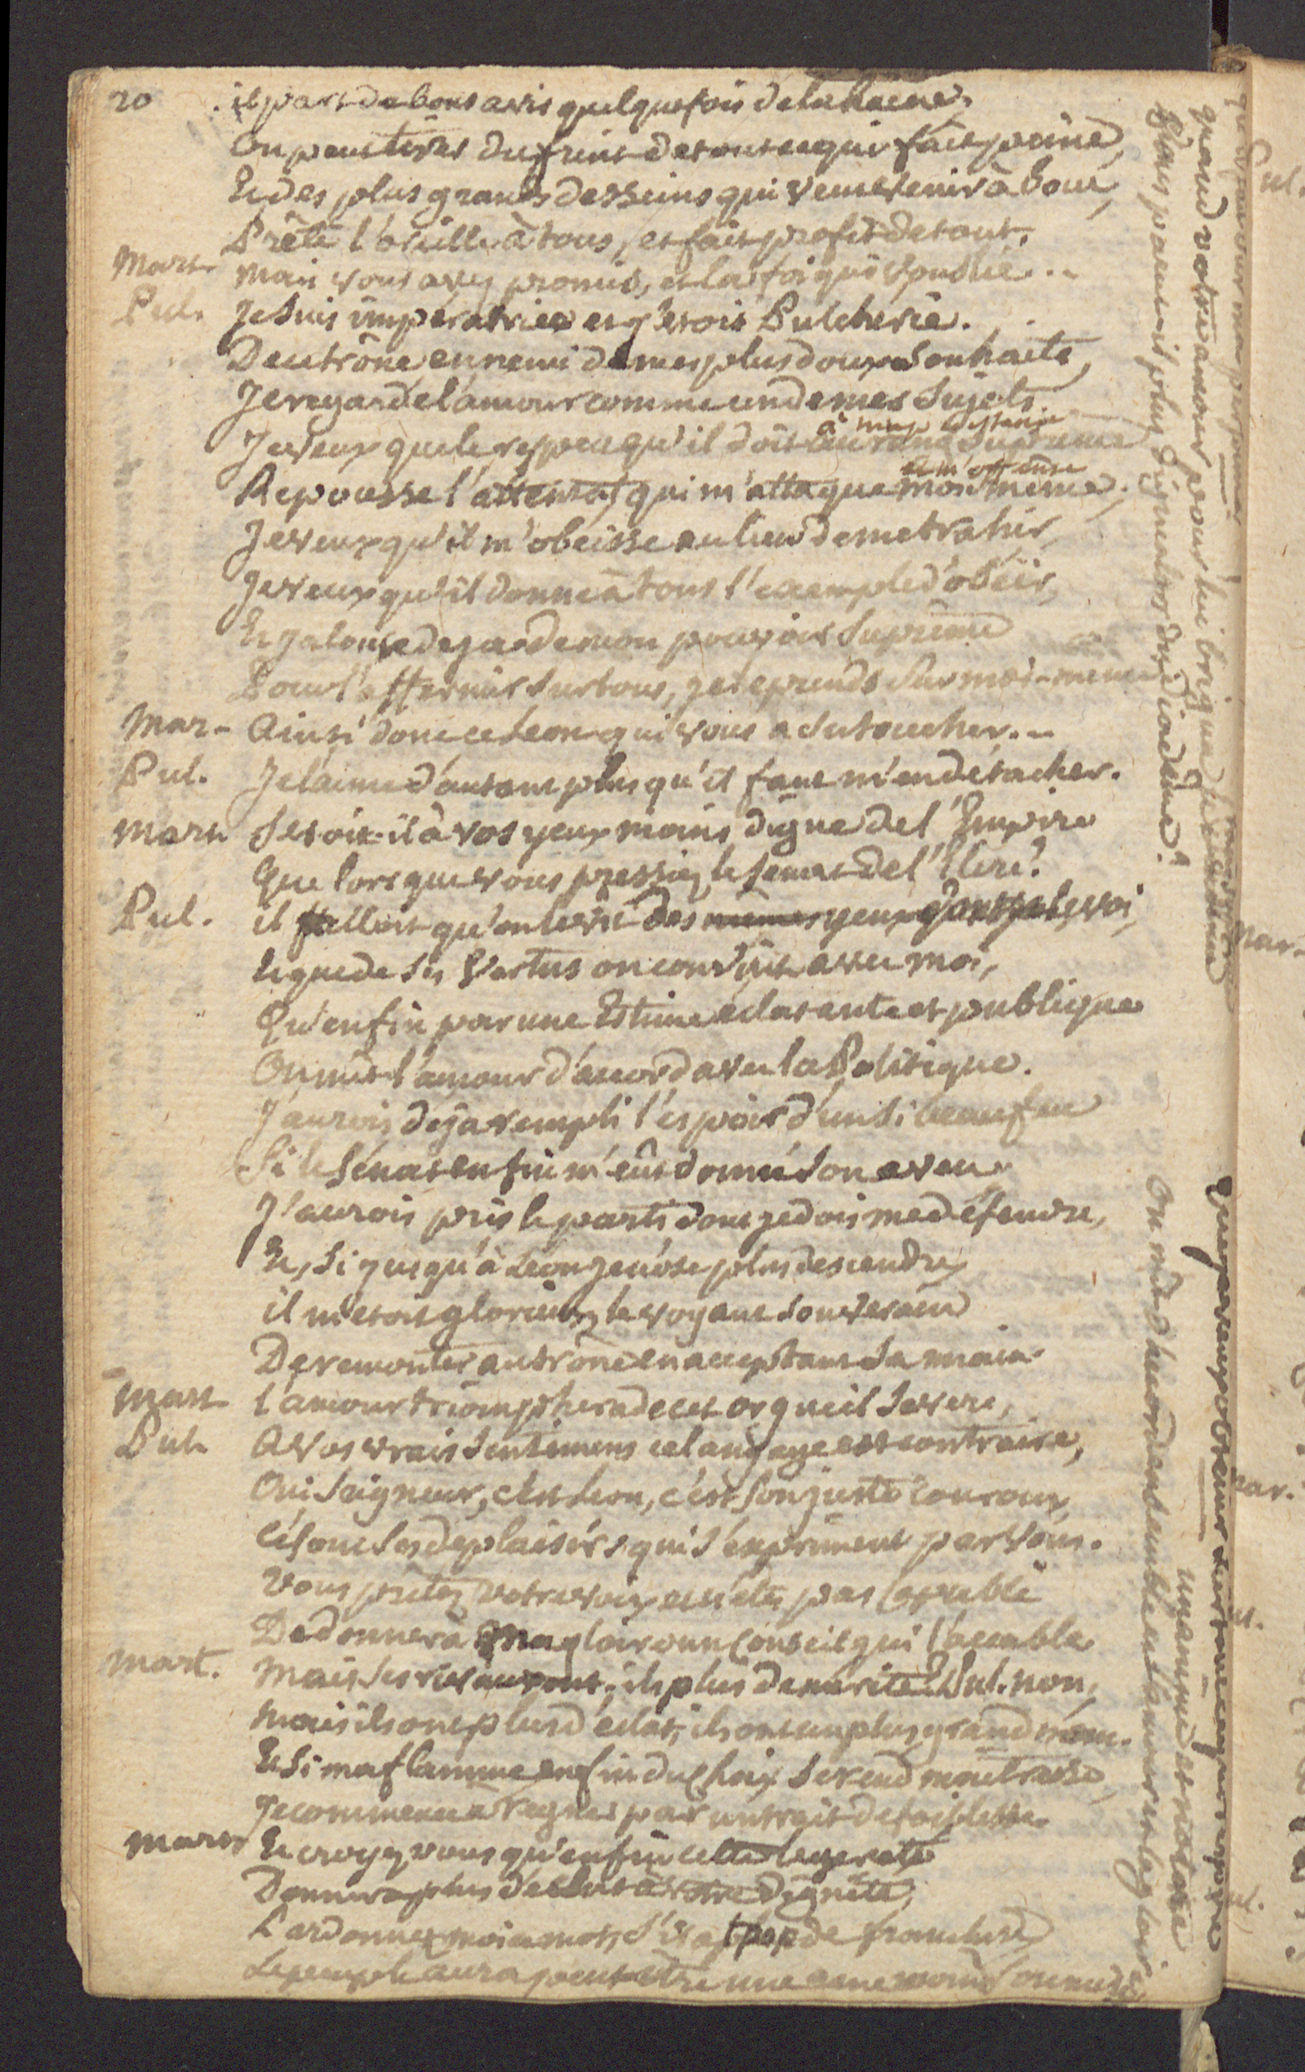 20
il part de bons avis quelquefois de la haine,
On peut tirer du fruit de tout ce qui fait peine,
Et des plus grands desseins qui veut venir à bout,
Prête l'oreille à tous, et fait profit de tout.
Mart. mais vous avez promis, et la foi qui vous lie...
Pul. Je suis impératrice et j'etois Pulcherie.
De ce trône ennemi de mes plus doux souhaits,
Je regarde l'amour comme un de mes sujets
Je veux que le respect qu'il doit au rang suprême
à ma deffense
Repousse l'attentat qui m'attaque moi même;
et m'offense
Je veux qu'il m'obeisse au lieu de me trahir,
Je veux qu'il donne à tous l'exemple d'obéir,
Et jalouse deja de mon pouvoir suprême
Pour l'affermir sur tous, je le prends sur moi-même
Mar- Ainsi donc ce Leon qui vous a su toucher...
Pul. Je l'aime d'autant plus qu'il faut m'en détacher.
Mart. Seroit-il à vos yeux moins digne de l'Empire
Que lors que vous pressiez le senat de l'Elire?
Pul. il falloit qu'on le vit des mêmes yeux dont je le voi,
Et que de ses Vertus on convînt avec moi,
Qu'enfin par une Estime eclatante et publique
On mit l'amour d'accord avec la Politique.
J'aurois deja rempli l'espoir d'un si beau feu
Si le Sénat enfin m'eût donné son aveu
J'aurois pris le parti dont je dois me défendre,
Et, si jusqu'à Léon je n'ose plus descendre
il m'etoit glorieux, le voyant souverain
De remonter au trône en acceptant sa main.
Mart l'amour triomphera de cet orgueil severe,
Pul. A vos vrais sentimens ce langage est contraire,
Oui Seigneur, c'est Leon, c'est son juste couroux,
Ce sont ses deplaisirs qui s'expriment par vous.
Vous prêtez votre voix, et n'êtes pas capable
De donner à ma gloire un conseil qui l'accable
Mart. Mais ses rivaux ont-ils plus de merite? Pul. non,
Mais ils ont plus d'eclat, ils ont un plus grand nom.
Et si ma flamme enfin du choix se rend maitresse,
Je commence à regner par un trait de foiblesse.
Mart Et croyez vous qu'enfin cette legereté
Donnera plus d'eclat à votre dignité,
Pardonnez moi ce mot, s'il a trop de franchise
Le peuple aura peut-être une ame moins soumise
quand votre amour pour lui brigua le diademe